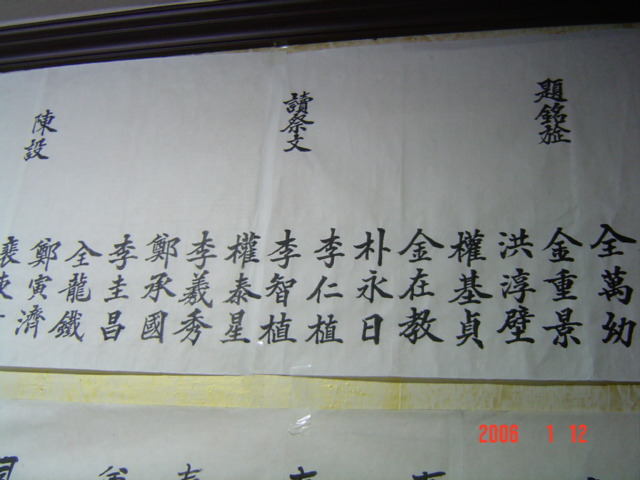 題銘旌
讀祭文
陳設
全萬幼
金重景
洪淳壁
權基貞
金在教
朴永日
李仁植
李智植
權泰星
李義秀
鄭承國
李圭昌
全龍鐵
鄭寅濟
裵
2006 1 12